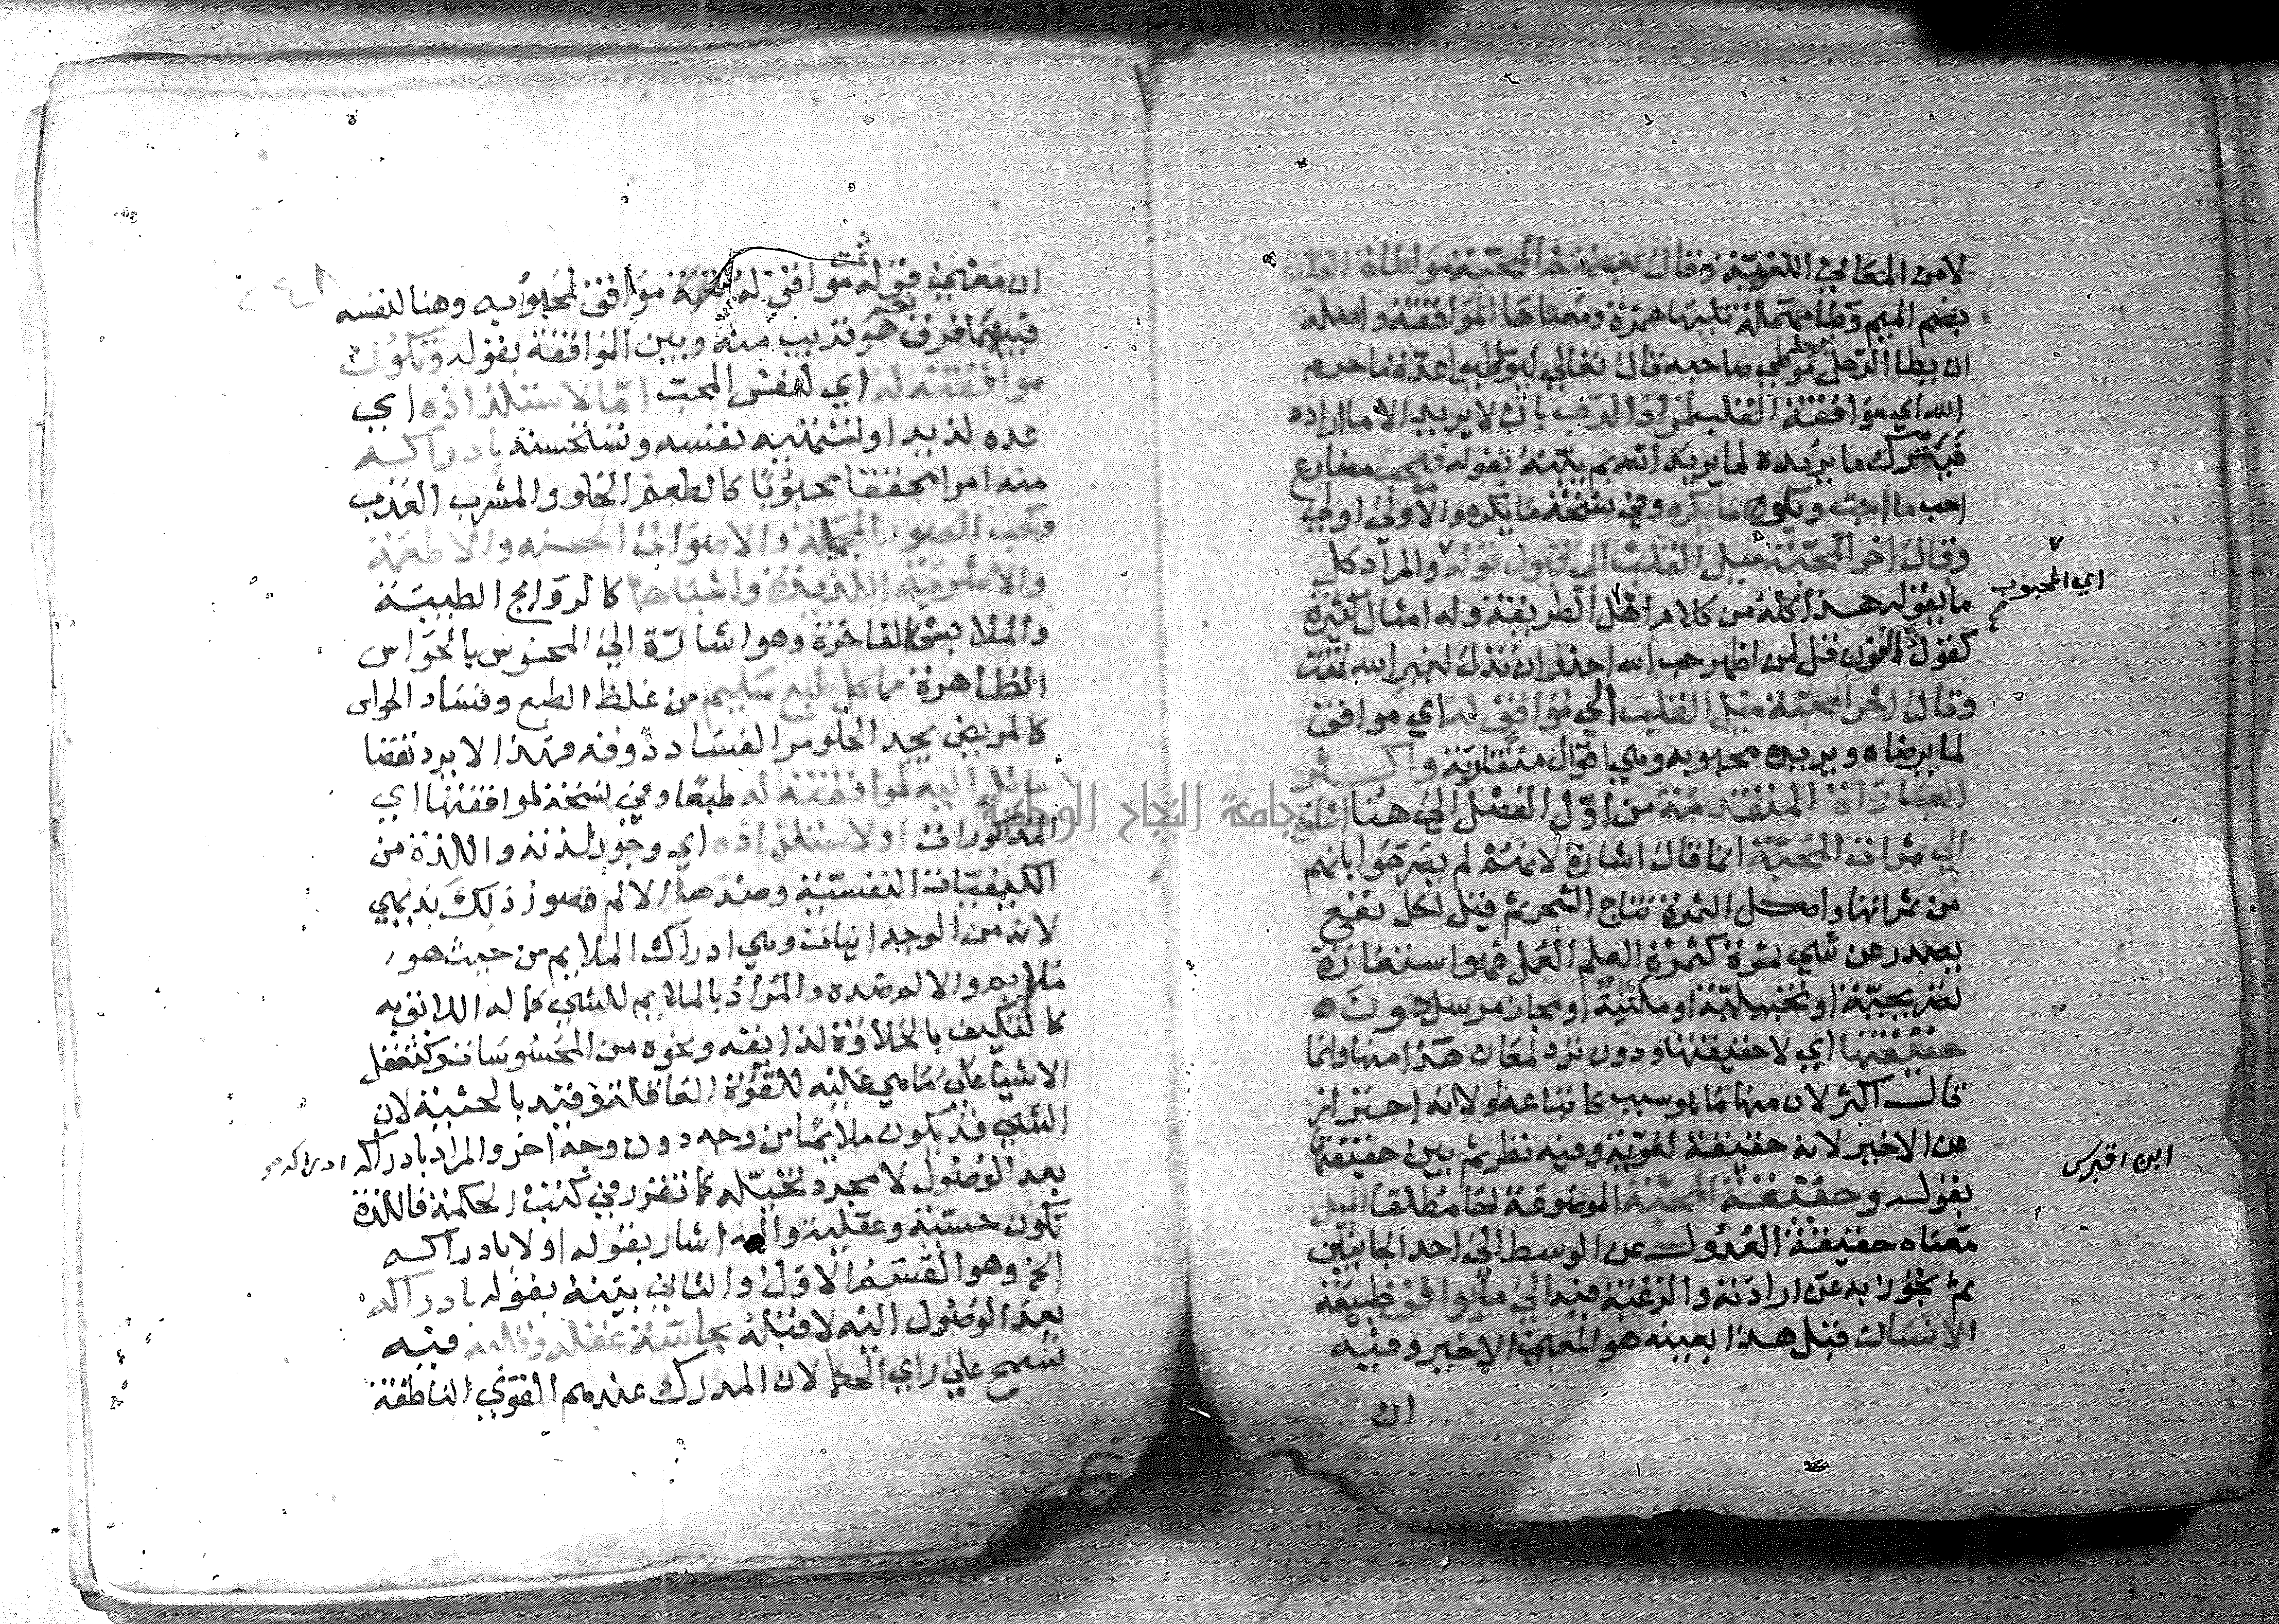 لا من المعاني اللغوية وقال بعضهم المحبة مواطاة القلب
بضم الميم وطا مهملة تليها همزة ومعناها الموافقة واصله
ان يطا الرجل برجله موطي صاحبه قال تعالي ليواطيوا عدة ما حرم
الله اي موافقة القلب لمراد الرب بان لا يريد الا ما اراده
فيترك ما يريده لما يريد الله ثم بينه بقوله فيحب مضارع
احب ما احب ويكره ما يكره وفي نسخة ما يكره والاولي اولي
وقال اخر المحبة ميل القلب الي قبول قوله والمراد كل
اي المحبوب
ما يقوله هذا كله من كلام اهل الطريقة وله امثال كثيرة
كقول ذي النون قل لمن اظهر حب الله احذر ان تذل لغير الله تمت
وقال اخر المحبة ميل القلب الي موافق له اي موافق
لما يرضاه ويريده محبوبه وهي اقوال متقاربة واكثر
العبارات المتقدمة من اول الفصل الي هنا اشارة
الي ثمرات المحبة انما قال اشارة لانهم لم يصرحوا بانهم
من ثمراتها واصل الثمرة نتاج الشجر ثم قيل لكل نفع
يصدر عن شي ثمرة كثمرة العلم العمل فهو استعارة
تصريحية او تخييلية او مكنية او مجاز مرسل دون
حقيقتها اي لا حقيقتها ودون ترد لمعان هذا منها وانما
قال اكثر لان منها ما هو سبب كاتباعه ولانه احتراز
عن الاخير لانه حقيقة لغوية وفيه نظر ثم بين حقيقتها
ابن اقبرس
بقوله وحقيقة المحبة الموضوعة لها مطلقا الميل
معناه حقيقة العدول عن الوسط الي احد الجانبين
ثم تجوز به عن ارادته والرغبة فيه الي ما يوافق طبيعة
الانسان قيل هذا بعينه هو المعني الاخير وفيه
ان
٢٤٨
ان معني قوله ثمت موافق له موافق لمحبوبه وهنا لنفسه
فبينهما فرق نحم هو قريب منه وبين الموافقة بقوله وتكون
موافقته له اي لنفس المحب اما لاستلذاذه اي
عده لذيذا وتشتهيه نفسه وتستحسنه بادراكه
منه امرا محققا محبوبا كالطعم الحلو والمشرب العذب
وكحب الصور الجميلة والاصوات الحسنة والاطعمة
والاشربة اللذيذة واشباهها كالروايح الطيبة
والملابس الفاخرة وهو اشارة الي المحسوس بالحواس
الظاهرة مما كل طبع سليم من غلظ الطبع وفساد الحواس
كالمريض يجد الحلو مرا لفساد ذوقه فهذا لا يرد نقضا
مايل اليه لموافقته له طبعا وفي نسخة لموافقتها اي
المذكورات او لاستلذاذه اي وجود لذته واللذة من
الكيفيات النفسية وضدها الالم فصور ذلك بديهي
لانه من الوجدانيات وهي ادراك الملايم من حيث هو
ملايم والالم ضده والمراد بالملايم للشي كماله اللائق به
كالتكيف بالحلاوة لذايقه ونحوه من المحسوسات وكتعقل
الاشيا علي ما هي عليه للقوة العاقلة وقيد بالحيثية لان
الشي قد يكون ملايما من وجه دون وجه اخر والمراد بادراكه
ادراكه هو
بعد الوصول لا مجرد تخيله كما تقرر في كتب الحكمة فاللذة
تكون حسية وعقلية واليه اشار بقوله اولا بادراكه
الخ وهو القسم الاول والثاني بينه بقوله بادراكه
بعد الوصول اليه لا قبله بحاسة عقله وقلبه فيه
تسمح علي راي الحكما لان المدرك عندهم القوي الناطقة
جامعة النجاح الوطنية